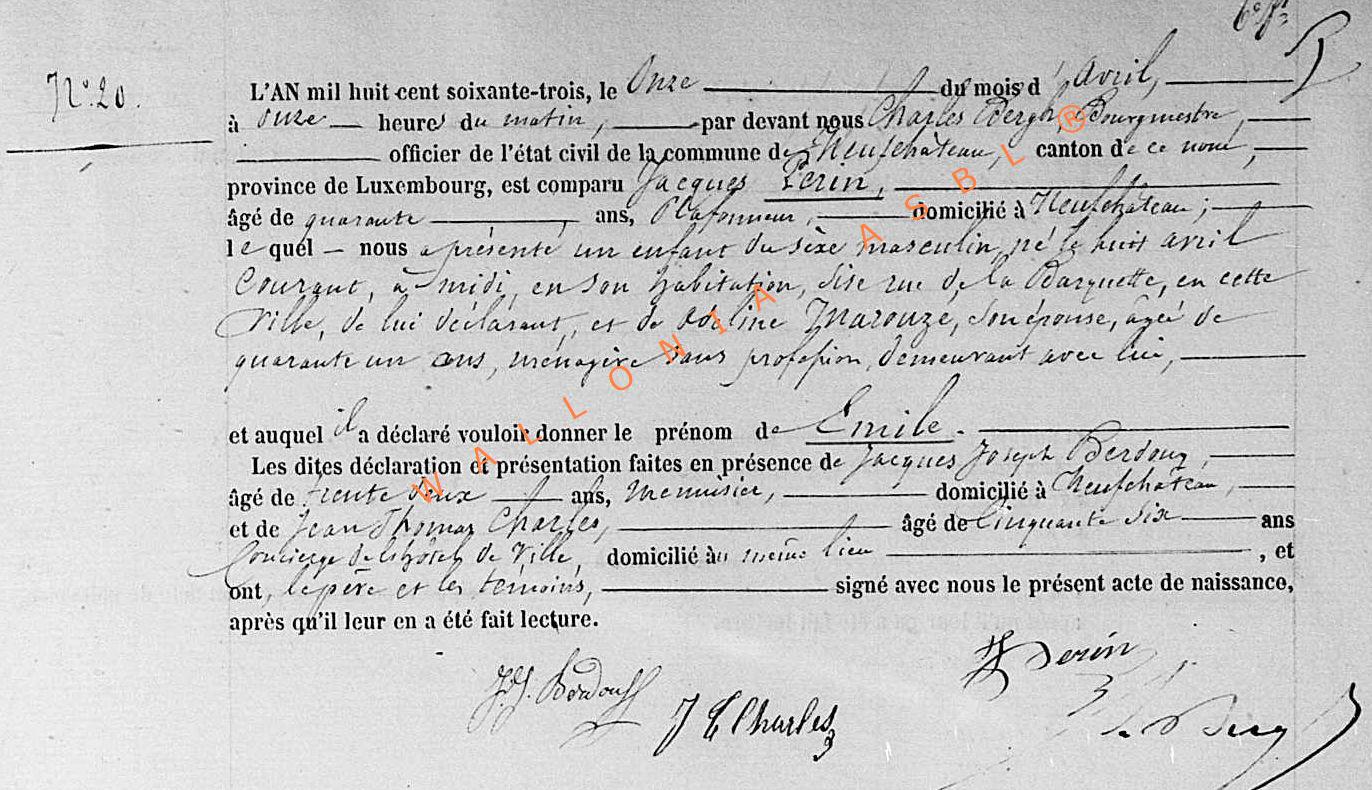 N° 20.
L'AN mil huit cent soixante-trois, le Onze du mois d'Avril,
à onze heures du matin, par devant nous Charles Bergh, Bourgmestre,
officier de l'état civil de la commune de Neufchâteau, canton de ce nom,
province de Luxembourg, est comparu Jacques Perin,
âgé de quarante ans, Plafonneur, domicilié à Neufchâteau;
lequel nous a présenté un enfant du sèxe masculin, né le huit avril
courant, à midi, en son habitation, sise rue de la Barquette, en cette
Ville, de lui déclarant, et de Odeline Marouzé, son épouse, agée de
quarante un ans, ménagère sans profession, demeurant avec lui,
et auquel il a déclaré vouloir donner le prénom de Emile.
Les dites déclaration et présentation faites en présence de Jacques Joseph
âgé de trente deux ans, menuisier, domicilié à Neufchâteau,
et de Jean Thomas Charles, âgé de Cinquante six ans
Concierge de l'hôtel de Ville, domicilié au même lieu, et
ont, le père et les témoins, signé avec nous le présent acte de naissance,
après qu'il leur en a été fait lecture.
J Perin
J. J.
J T Charles
WALLONIA ASBL ®